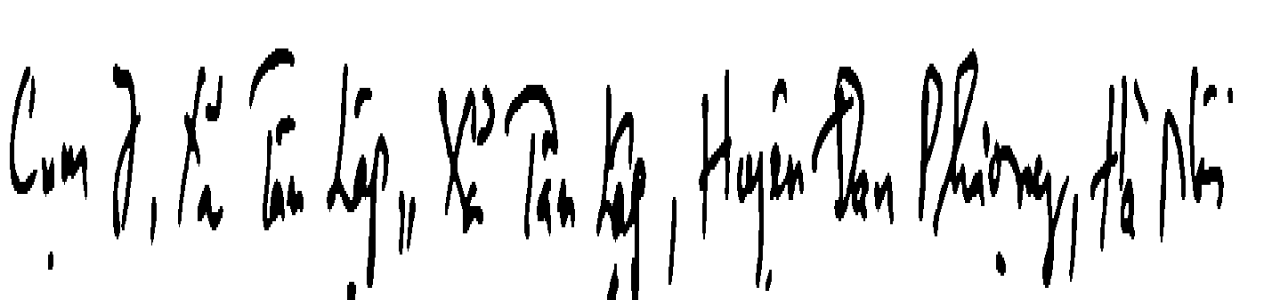 Cụm 7, Xã Tân Lập,, Xã Tân Lập, Huyện Đan Phượng, Hà Nội